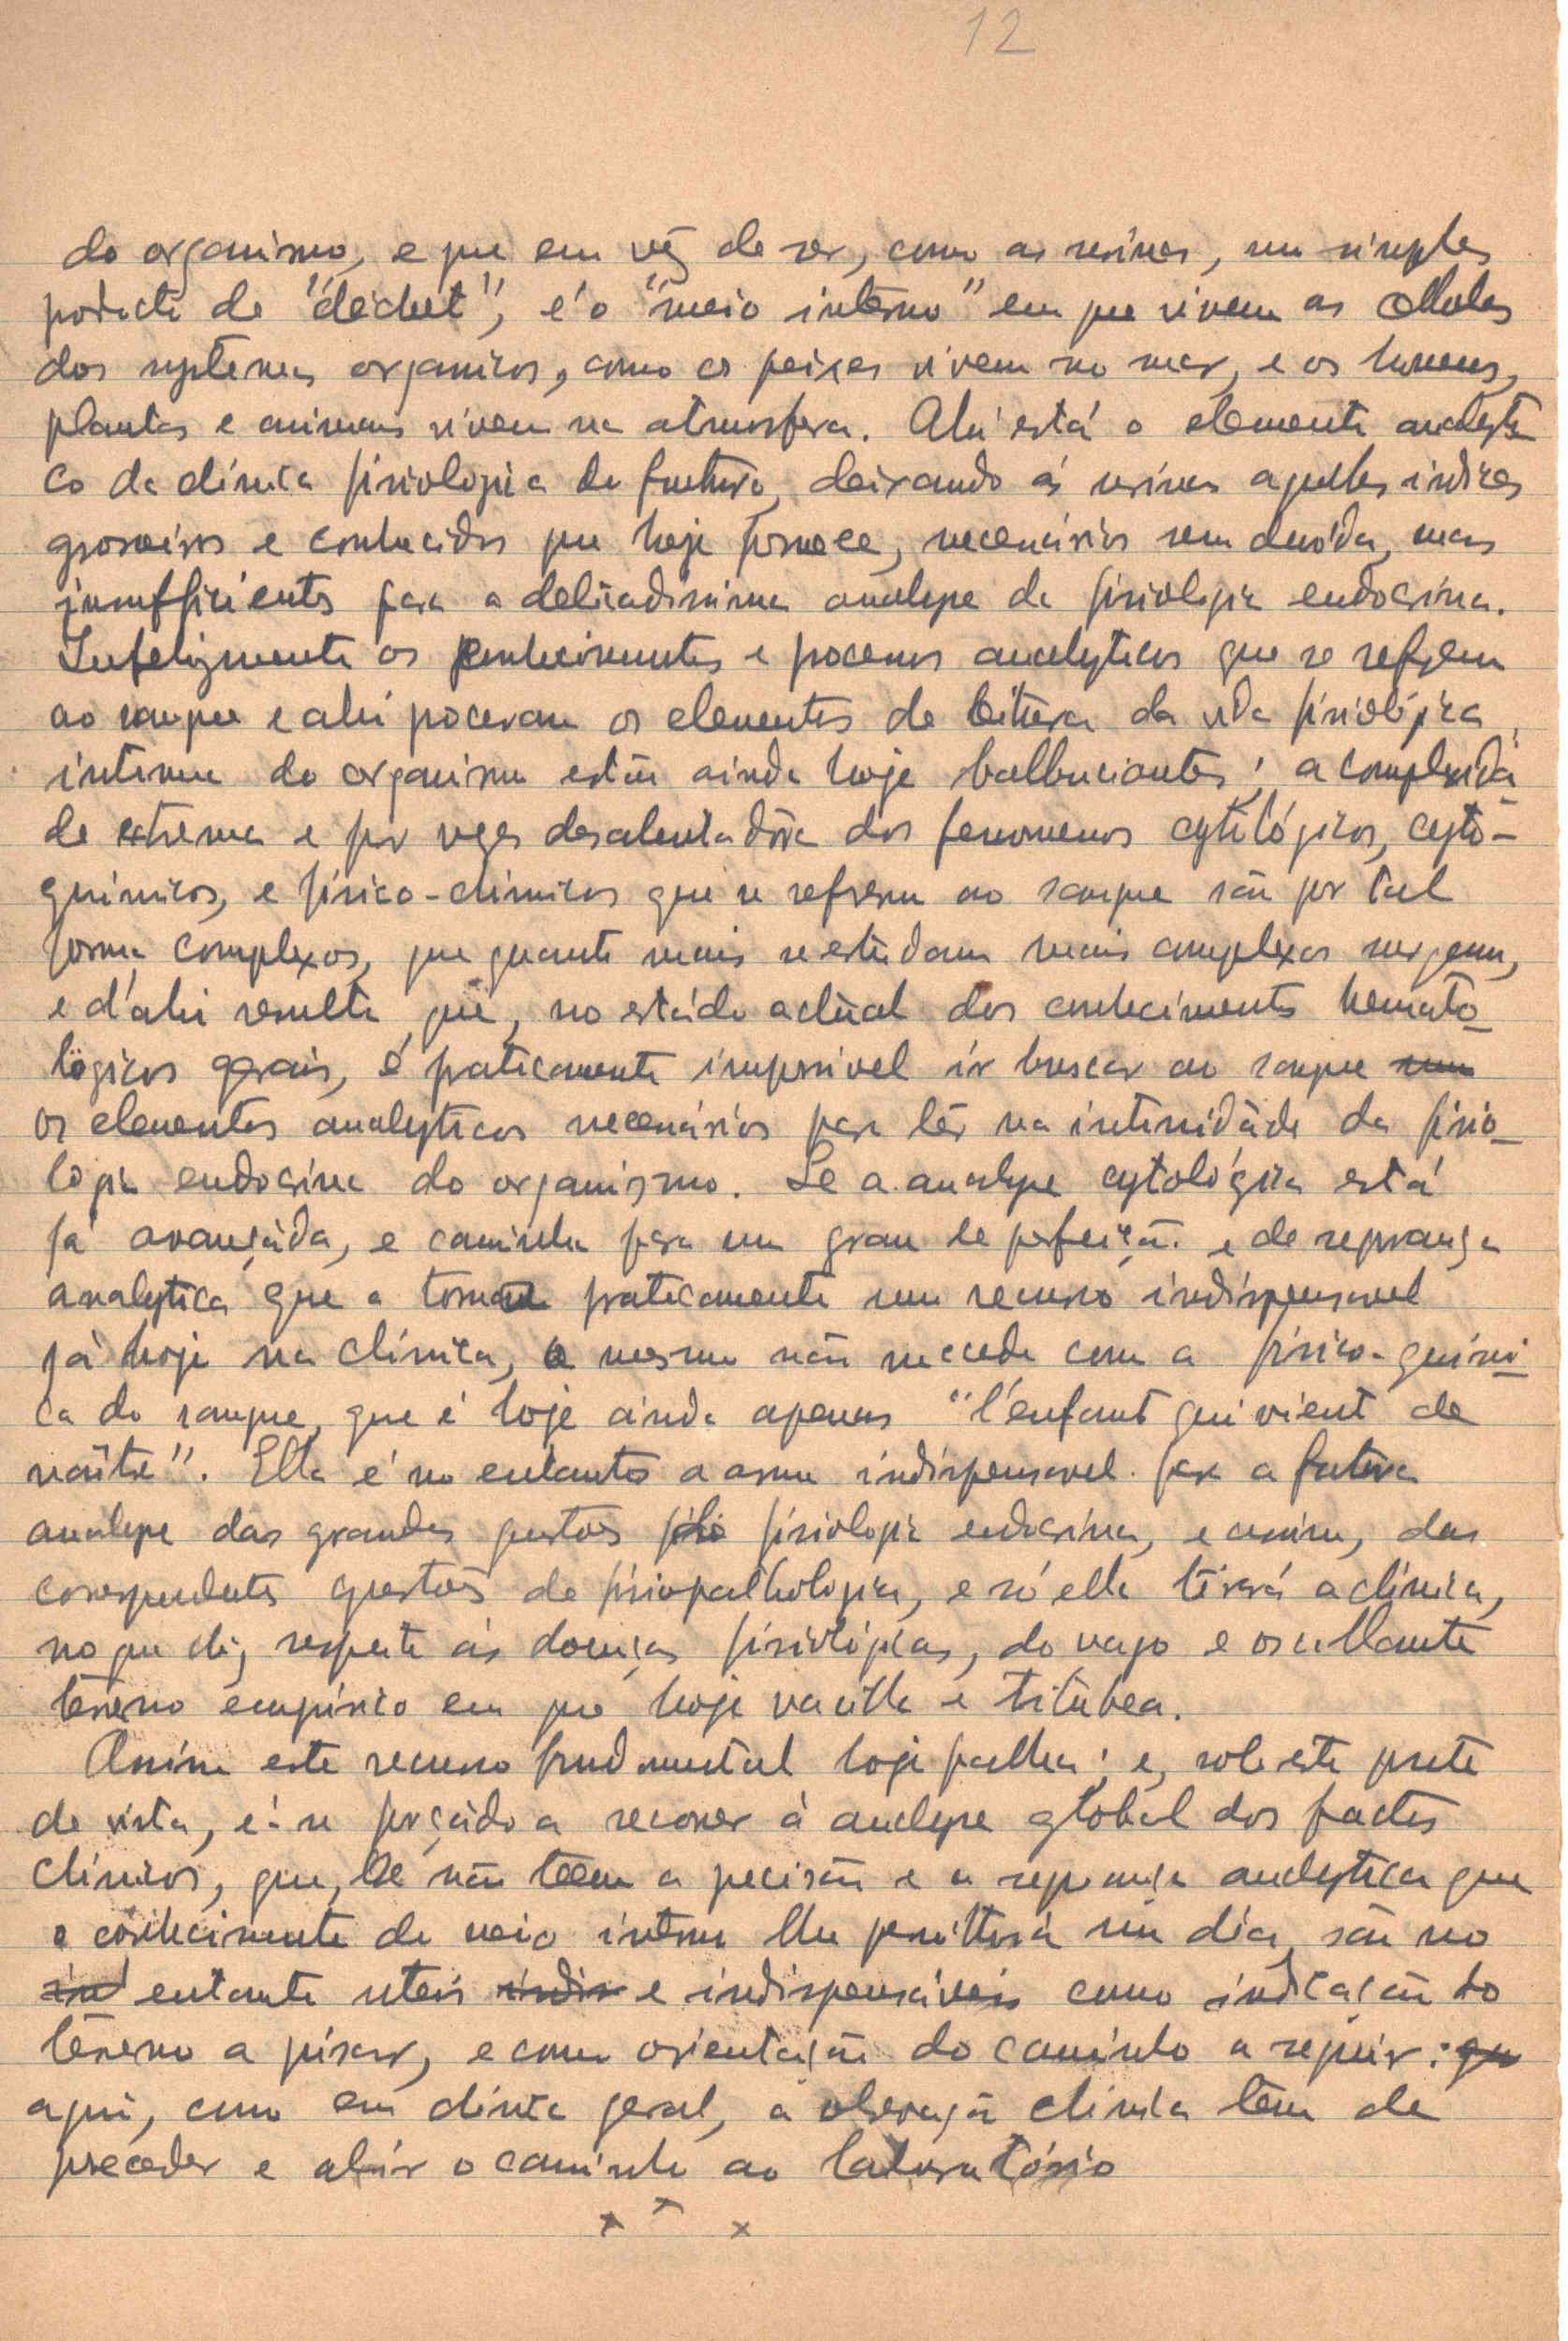 12
do organismo, e que em vêz de ser, como as urinas, um simples
producto de "déchet", é o "meio interno" em que vivem as cellulas
dos systemas organicos, como os peixes vivem no mar, e os homens,
plantas e animais vivem na atmosfera. Ahi está o elemento analyti
co da clínica fisiologica do futuro, deixando ás urinas aquelles indices
grosseiros e conhecidos que hoje fornece, necessários sem duvida, mas
insufficientes para a delicadissima analyse da fisiologia endocrina.
Infelizmente os conhecimentos e processos analyticos que se referem
ao sangue e ahi procuram os elementos de leitura da vida fisiológica
interna do organismo estão ainda hoje balbuciantes; a complexida-
de extrema e por vezes desalentadôra dos fenomenos cytológicos, cyto-
quimicos, e fisico-chimicos que se referem ao sangue são por tal
forma complexos, que quanto mais se estudam mais complexos surgem,
e d'ahi resulta que, no estádo actual dos conhecimentos hemato-
lógicos gerais, é praticamente impossivel ir buscar ao sangue
os elementos analyticos necessários para lêr na intimidáde da fisio-
logia endocrina do organismo. Se a analyse cytológica está
já avançáda, e caminha para um grau de perfeição e de segurança
analytica que a torna praticamente um recurso indispensavel
já hoje na clínica, o mesmo não succede com a físico-quimi-
ca do sangue, que é hoje ainda apenas "l'enfant qui vient de
naître". Ella é no entanto a arma indispensavel para a futura
analyse das grandes questões fisiologia endocrina, e assim, das
correspondentes questões de fisiopathologia, e só ella tirará a clínica,
no que diz respeito ás doenças fisiológicas, do vago e oscillante
terreno empirico em que hoje vacilla e titubea.
Assim este recurso fundamental hoje falha; e, sob este ponto
de vista, é-se forçádo a recorrer á analyse global dos factos
clínicos, que, se não teem a precisão e a segurança analytica que
o conhecimento do meio interno lhe permittirá um dia, são no
entanto uteis e indispensáveis como indicação do
terreno a pisar, e como orientação do caminho a seguir:
aqui, como em clínica geral, a observação clínica tem de
preceder e abrir o caminho ao laboratório
x x x